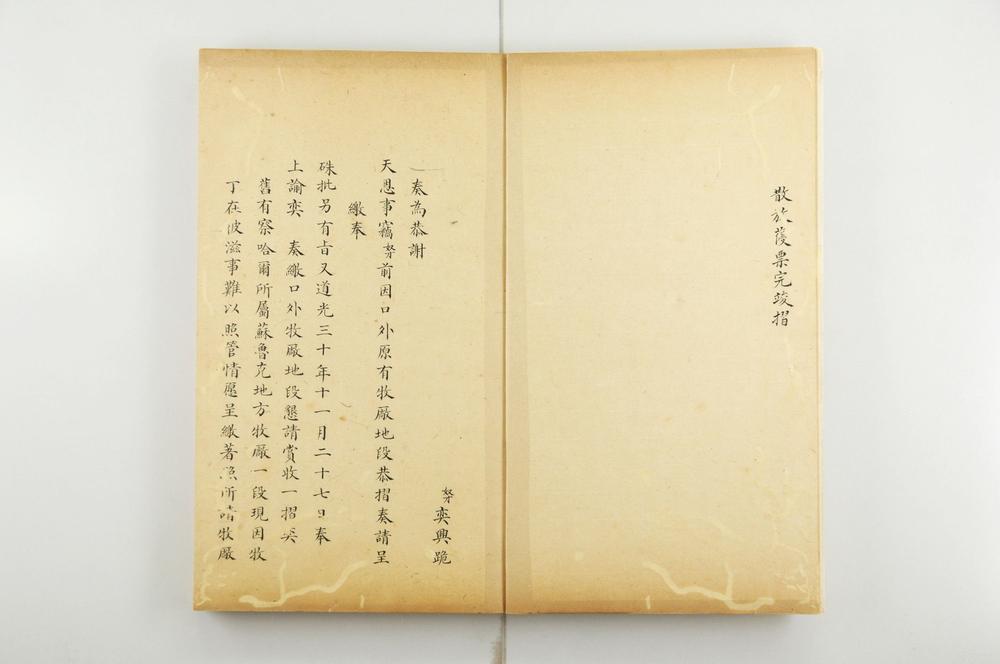 散於葠票完竣摺
奴才奕興跪
一奏為恭謝
天恩事竊奴才前因口外原有牧厰地段恭摺奏請呈
繳奉
硃批另有旨又道光三十年十一月二十七日奉
上諭奕 奏繳口外牧厰地段懇請賞收一摺奕
舊有察哈爾所屬蘇魯克地方牧厰一段現因牧
丁在彼滋事難以照管情愿呈繳著照所請牧厰